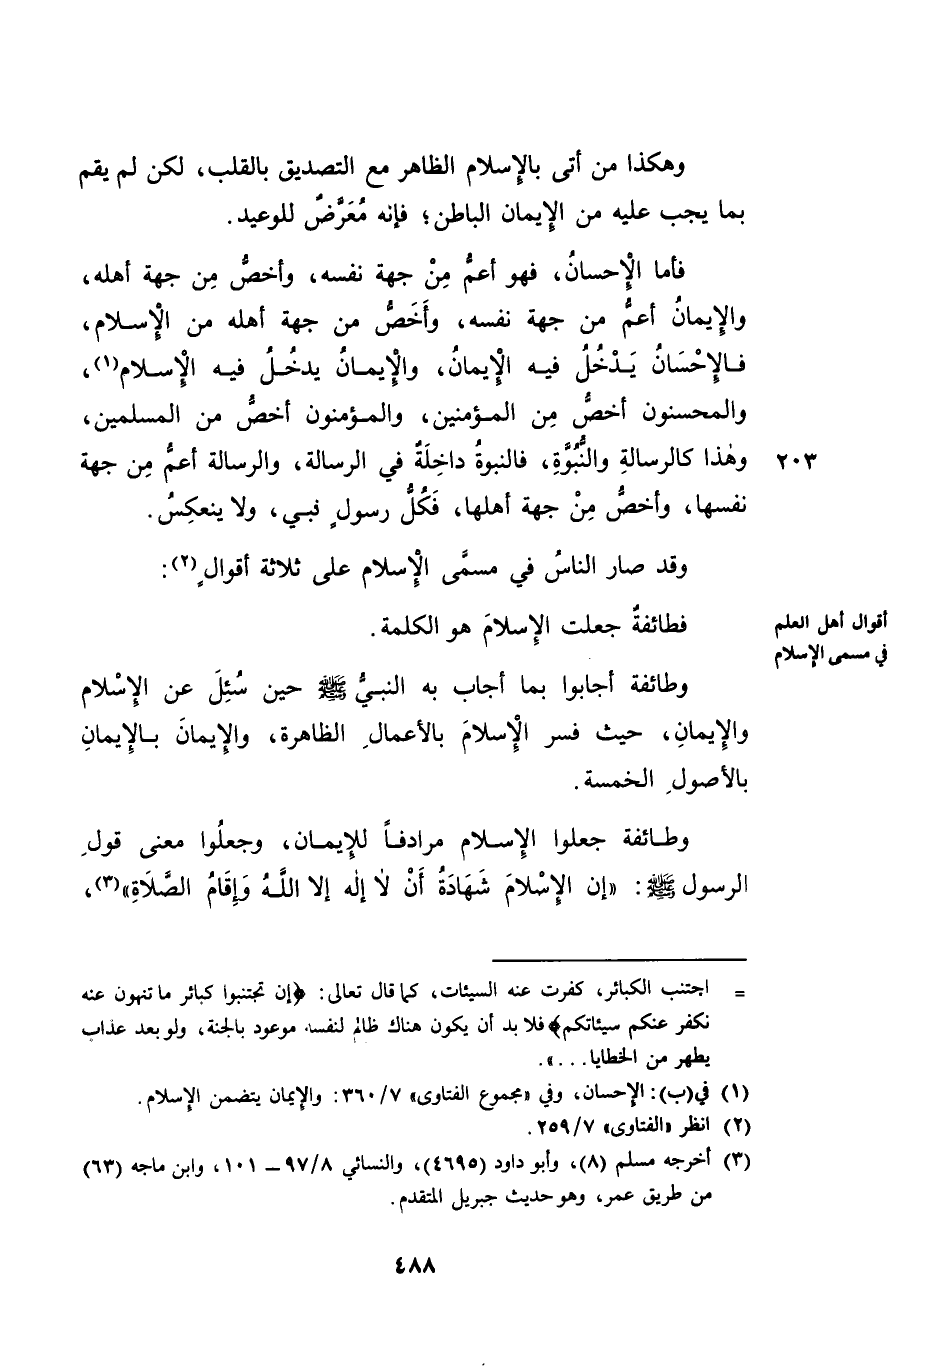 وهكذا من أتى بالإسلام الظاهر مع التصديق بالقلب، لكن لم يقم
بما يجب عليه من الإيمان الباطن؛ فإنه مُعَرَّضٌ للوعيد.
فأما الْإحسانُ، فهو أعمُّ مِنْ جهة نفسه، وأخصُّ مِن جهة أهله،
والإيمانُ أعمُّ من جهة نفسه، وأَخَصُّ من جهة أهله من الْإسلام،
فالإحْسَانُ يَدْخُلُ فيه الْإيمانُ، والْإيمانُ يدخُلُ فيه الْإسلام(١)،
والمحسنون أخصُّ مِن المؤمنين، والمؤمنون أخصُّ من المسلمين،
وهٰذا كالرسالةِ والنُّبُوَّةِ، فالنبوةُ داخِلَةٌ في الرسالة، والرسالة أعمُّ مِن جهة
٢٠٣
نفسها، وأخصُّ مِنْ جهة أهلها، فَكُلُّ رسولٍ نبي، ولا ينعكِسُ.
وقد صار الناسُ في مسمَّى الْإسلام على ثلاثة أقوالٍ(٢):
فطائفةٌ جعلت الإسلامَ هو الكلمة.
أقوال أهل العلم
في مسمى الإسلام
وطائفة أجابوا بما أجاب به النبيُّ ﷺ حين سُئِلَ عن الإسْلام
والإيمانِ، حيث فسر الْإسلامَ بالأعمالِ الظاهرة، والإيمانَ بالإيمانِ
بالأصولِ الخمسة.
وطائفة جعلوا الإسلام مرادفاً للإيمان، وجعلُوا معنى قولِ
الرسول ﷺ: «إن الإسْلامَ شَهَادَةُ أَنْ لٰا إلٰه إلا اللَّهُ وَإِقَامُ الصَّلَاةِ»(٣)،
= اجتنب الكبائر، كفرت عنه السيئات، كما قال تعالى: ﴿إن تجتنبوا كبائر ما تنهون عنه
نكفر عنكم سيئاتكم﴾ فلا بد أن يكون هناك ظالم لنفسه موعود بالجنة، ولو بعد عذاب
يطهر من الخطايا...».
(١) في(ب): الإحسان، وفي «مجموع الفتاوى» ٣٦٠/٧: والإيمان يتضمن الإسلام.
(٢) انظر «الفتاوى» ٢٥٩/٧.
(٣) أخرجه مسلم (٨)، وأبو داود (٤٦٩٥)، والنسائي ٩٧/٨ ــ ١٠١، وابن ماجه (٦٣)
من طريق عمر، وهو حديث جبريل المتقدم.
٤٨٨